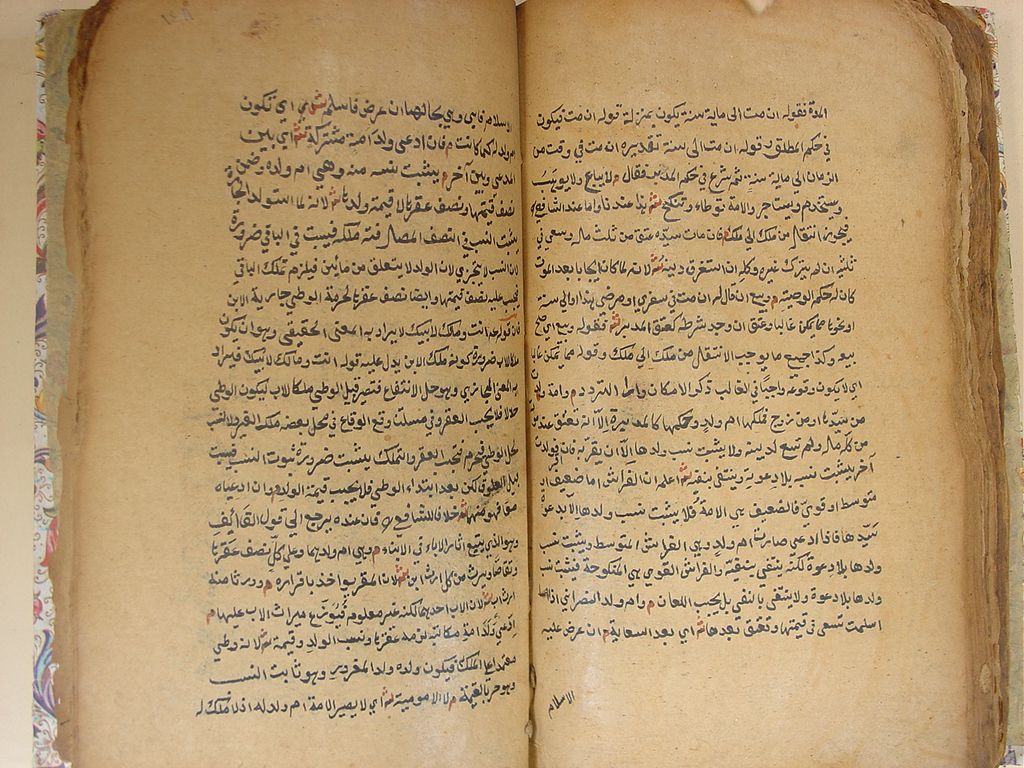 المدة فقوله ان مت الى ماية سنة يكون بمنزلة قوله ان مت فيكون
في حكم المطلق وقوله ان مت الى سنة تقديره ان مت في وقت من
الزمان الى ماية سنة ثم شرع في حكم المدبر فقال م لا يباع ولا يوهب
ويستخدم ويستاجر والامة توطاء وتنكح ش هذا عندنا واما عند الشافعي
فيجوز انتقال من ملك الى ملك م فان مات سيده عتق من ثلث ماله وسعى في
ثلثيه ان لم يترك غيره وكله ان استغرق دينه ش لانه لما كان ايجابا بعد الموت
كان له حكم الوصية م وبيع ان قال له ان مت في سفري او مرضي هذا او الى سنة
او نحوها مما يمكن غالبا وعتق ان وجد شرطه كعتق المدبر ش فقوله وبيع اي صح
بيعه وكذا جميع ما يوجب الانتقال من ملك الى ملك وقوله مما يمكن غالبا
اي لا يكون وقوعه واجبا في الغالب ذكر الامكان التردد م وامة ولدت
من سيدها او من زوج فملكها ام ولد وحكمها كالمدبرة الا انه تعتق عند موته
من كل ماله ولم تسع لدينه ولا يثبت نسب ولدها الا ان يقر به فان ولدت
آخر يثبت نسبه بلا دعوة وينتفي بنفيه ش اعلم ان الفراش اما ضعيف او
متوسط او قوي فالضعيف هي الامة فلا يثبت نسب ولدها الا بدعوة
سيدها فاذا ادعى صارت ام ولد وهي الفراش المتوسط ويثبت نسب
ولدها بلا دعوة لكنه ينتفي بنفيه والفراش القوي هي المنكوحة فيثبت نسب
ولدها بلا دعوة ولا ينتفي بالنفي بل يجب اللعان م وام ولد النصراني اذا
اسلمت تسعى في قيمتها وتعتق بعدها ش اي بعد السعاية م ان عرض عليه
الاسلام
الاسلام فابى وهي بحالها ان عرض فاسلم ش اي تكون
ام ولد له كما كانت م فان ادعى ولد امة مشتركة ش اي بين
المدعي وبين آخر م يثبت نسبه منه وهي ام ولده وضمن
نصف قيمتها ونصف عقرها لا قيمة ولدها ش لانه لما استولد
يثبت النسب في النصف المصادفة ملكه فيثبت في الباقي ضرورة
لان النسب لا يتجزى لان الولد لا يتعلق من مائين فيلزم تملك الباقي
فيجب عليه نصف قيمتها وايضا نصف عقرها لحرمة الوطي جارية الابن
فان قوله انت ومالك لابيك لا يراد به المعنى الحقيقي وهو ان يكون
ملكا لاب ضرورة كونه ملك الابن يدل عليه قوله انت ومالك لابيك فيراد
به المعنى المجازي وهو حل الانتفاع فتصير قبل الوطي ملكا للاب ليكون الوطي
حلالا فلا يجب العقر وفي مسئلتنا وقع الوقاع في محل بعضه ملك الغير
لحل الوطي فيحرم فيجب العقر والتملك يثبت ضرورة ثبوت النسب فيثبت
قبل العلوق لكن بعد ابتداء الوطي فلا يجب قيمة الولد م وان ادعياه
معا فهو منهما ش خلافا للشافعي فان عنده يرجع الى قول القائف
وهو الذي يتبع آثار الاباء في الابناء م وهي ام ولدهما وعلى كل نصف عقرها
وتقاصا وورث من كل ارث ابن ش لان المقر يواخذ باقراره م وورثا منه
ارث اب ش لان الاب احدهما لكنه غير معلوم فيوزع ميراث الاب عليهما م
ادعى ولد امة مكاتبه لزمه عقرها ونسب الولد وقيمته ش لانه وطي
معتمدا على الملك فيكون ولده ولد المغرور وهو ثابت النسب
وهو حر بالقيمة م لا الامومية ش اي لا يصير الامة ام ولد له اذ لا ملك له